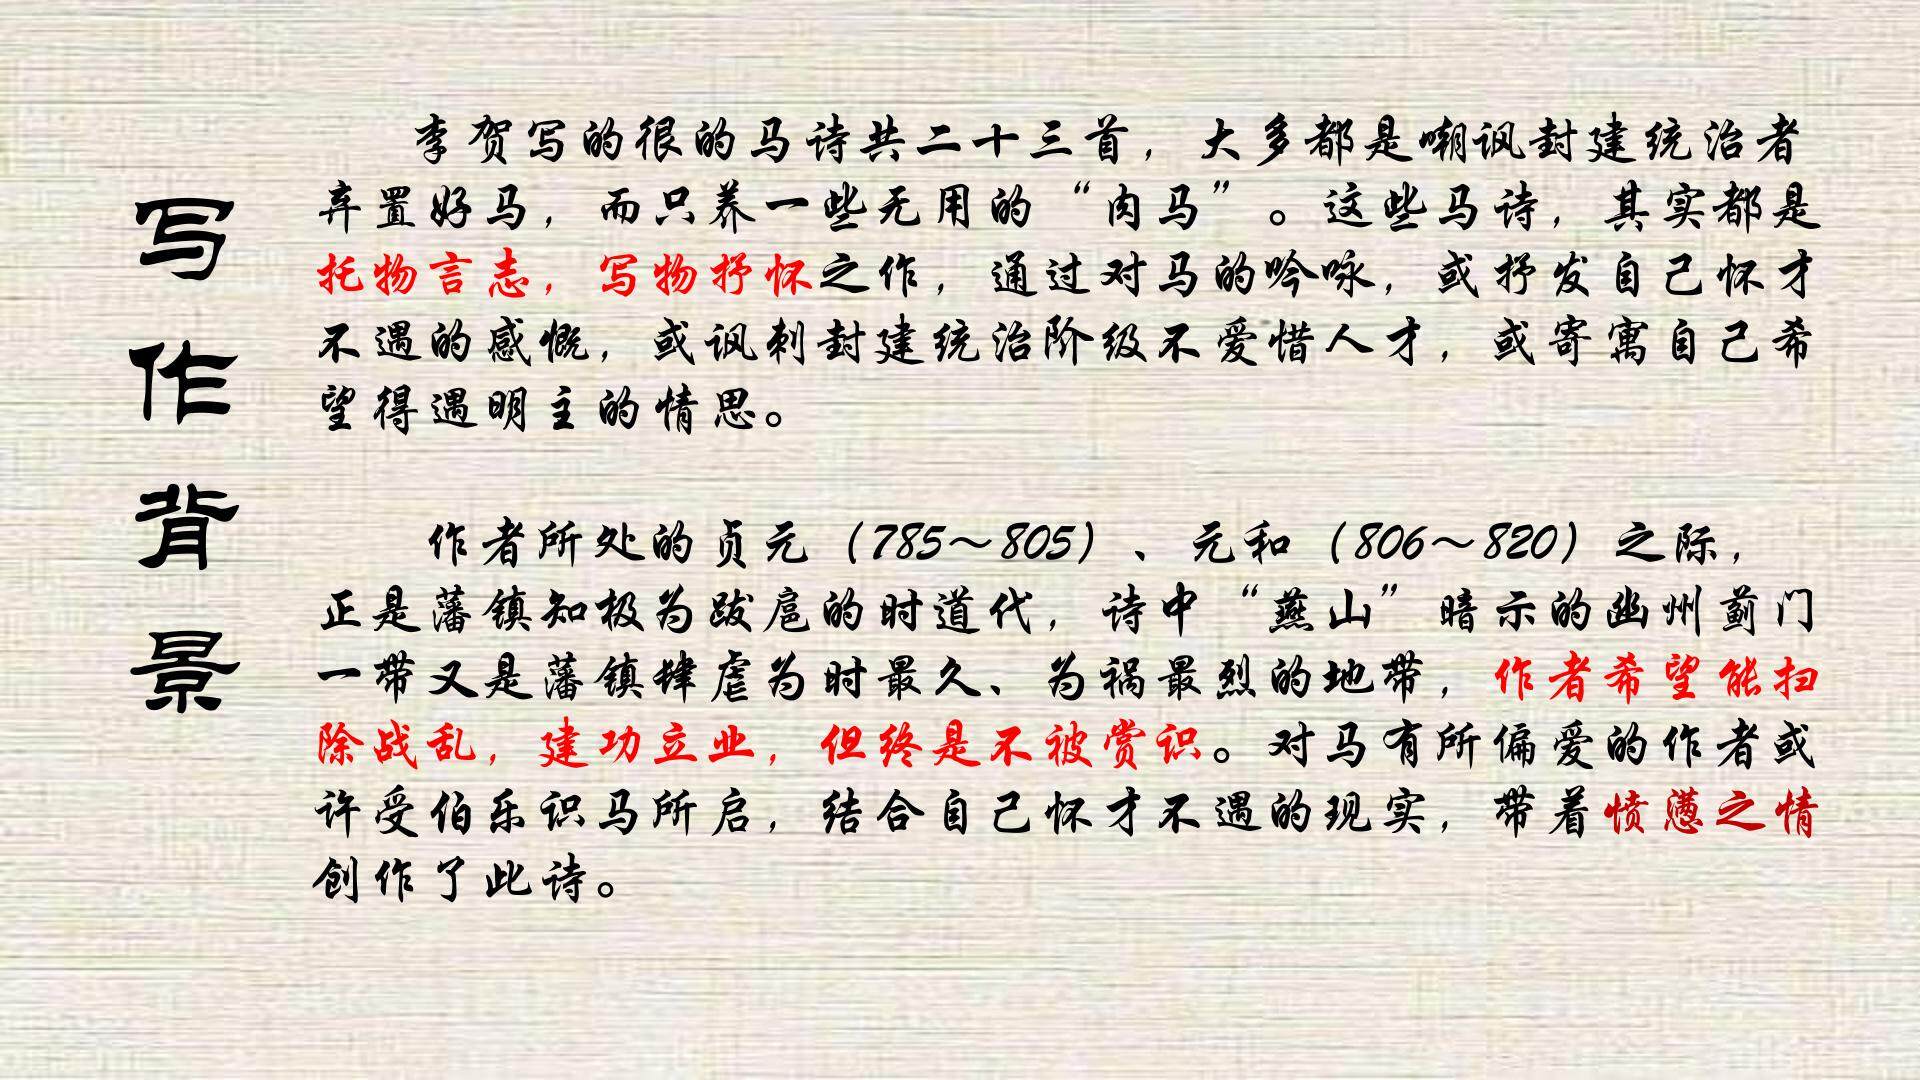 写作背景
李贺写的很的马诗共二十三首，大多都是嘲讽封建统治者
弃置好马，而只养一些无用的“肉马”。这些马诗，其实都是
托物言志，写物抒怀之作，通过对马的吟咏，或抒发自己怀才
不遇的感慨，或讽刺封建统治阶级不爱惜人才，或寄寓自己希
望得遇明主的情思。
作者所处的贞元（785～805）、元和（806～820）之际，
正是藩镇知极为跋扈的时道代，诗中“燕山”暗示的幽州蓟门
一带又是藩镇肆虐为时最久、为祸最烈的地带，作者希望能扫
除战乱，建功立业，但终是不被赏识。对马有所偏爱的作者或
许受伯乐识马所启，结合自己怀才不遇的现实，带着愤懑之情
创作了此诗。